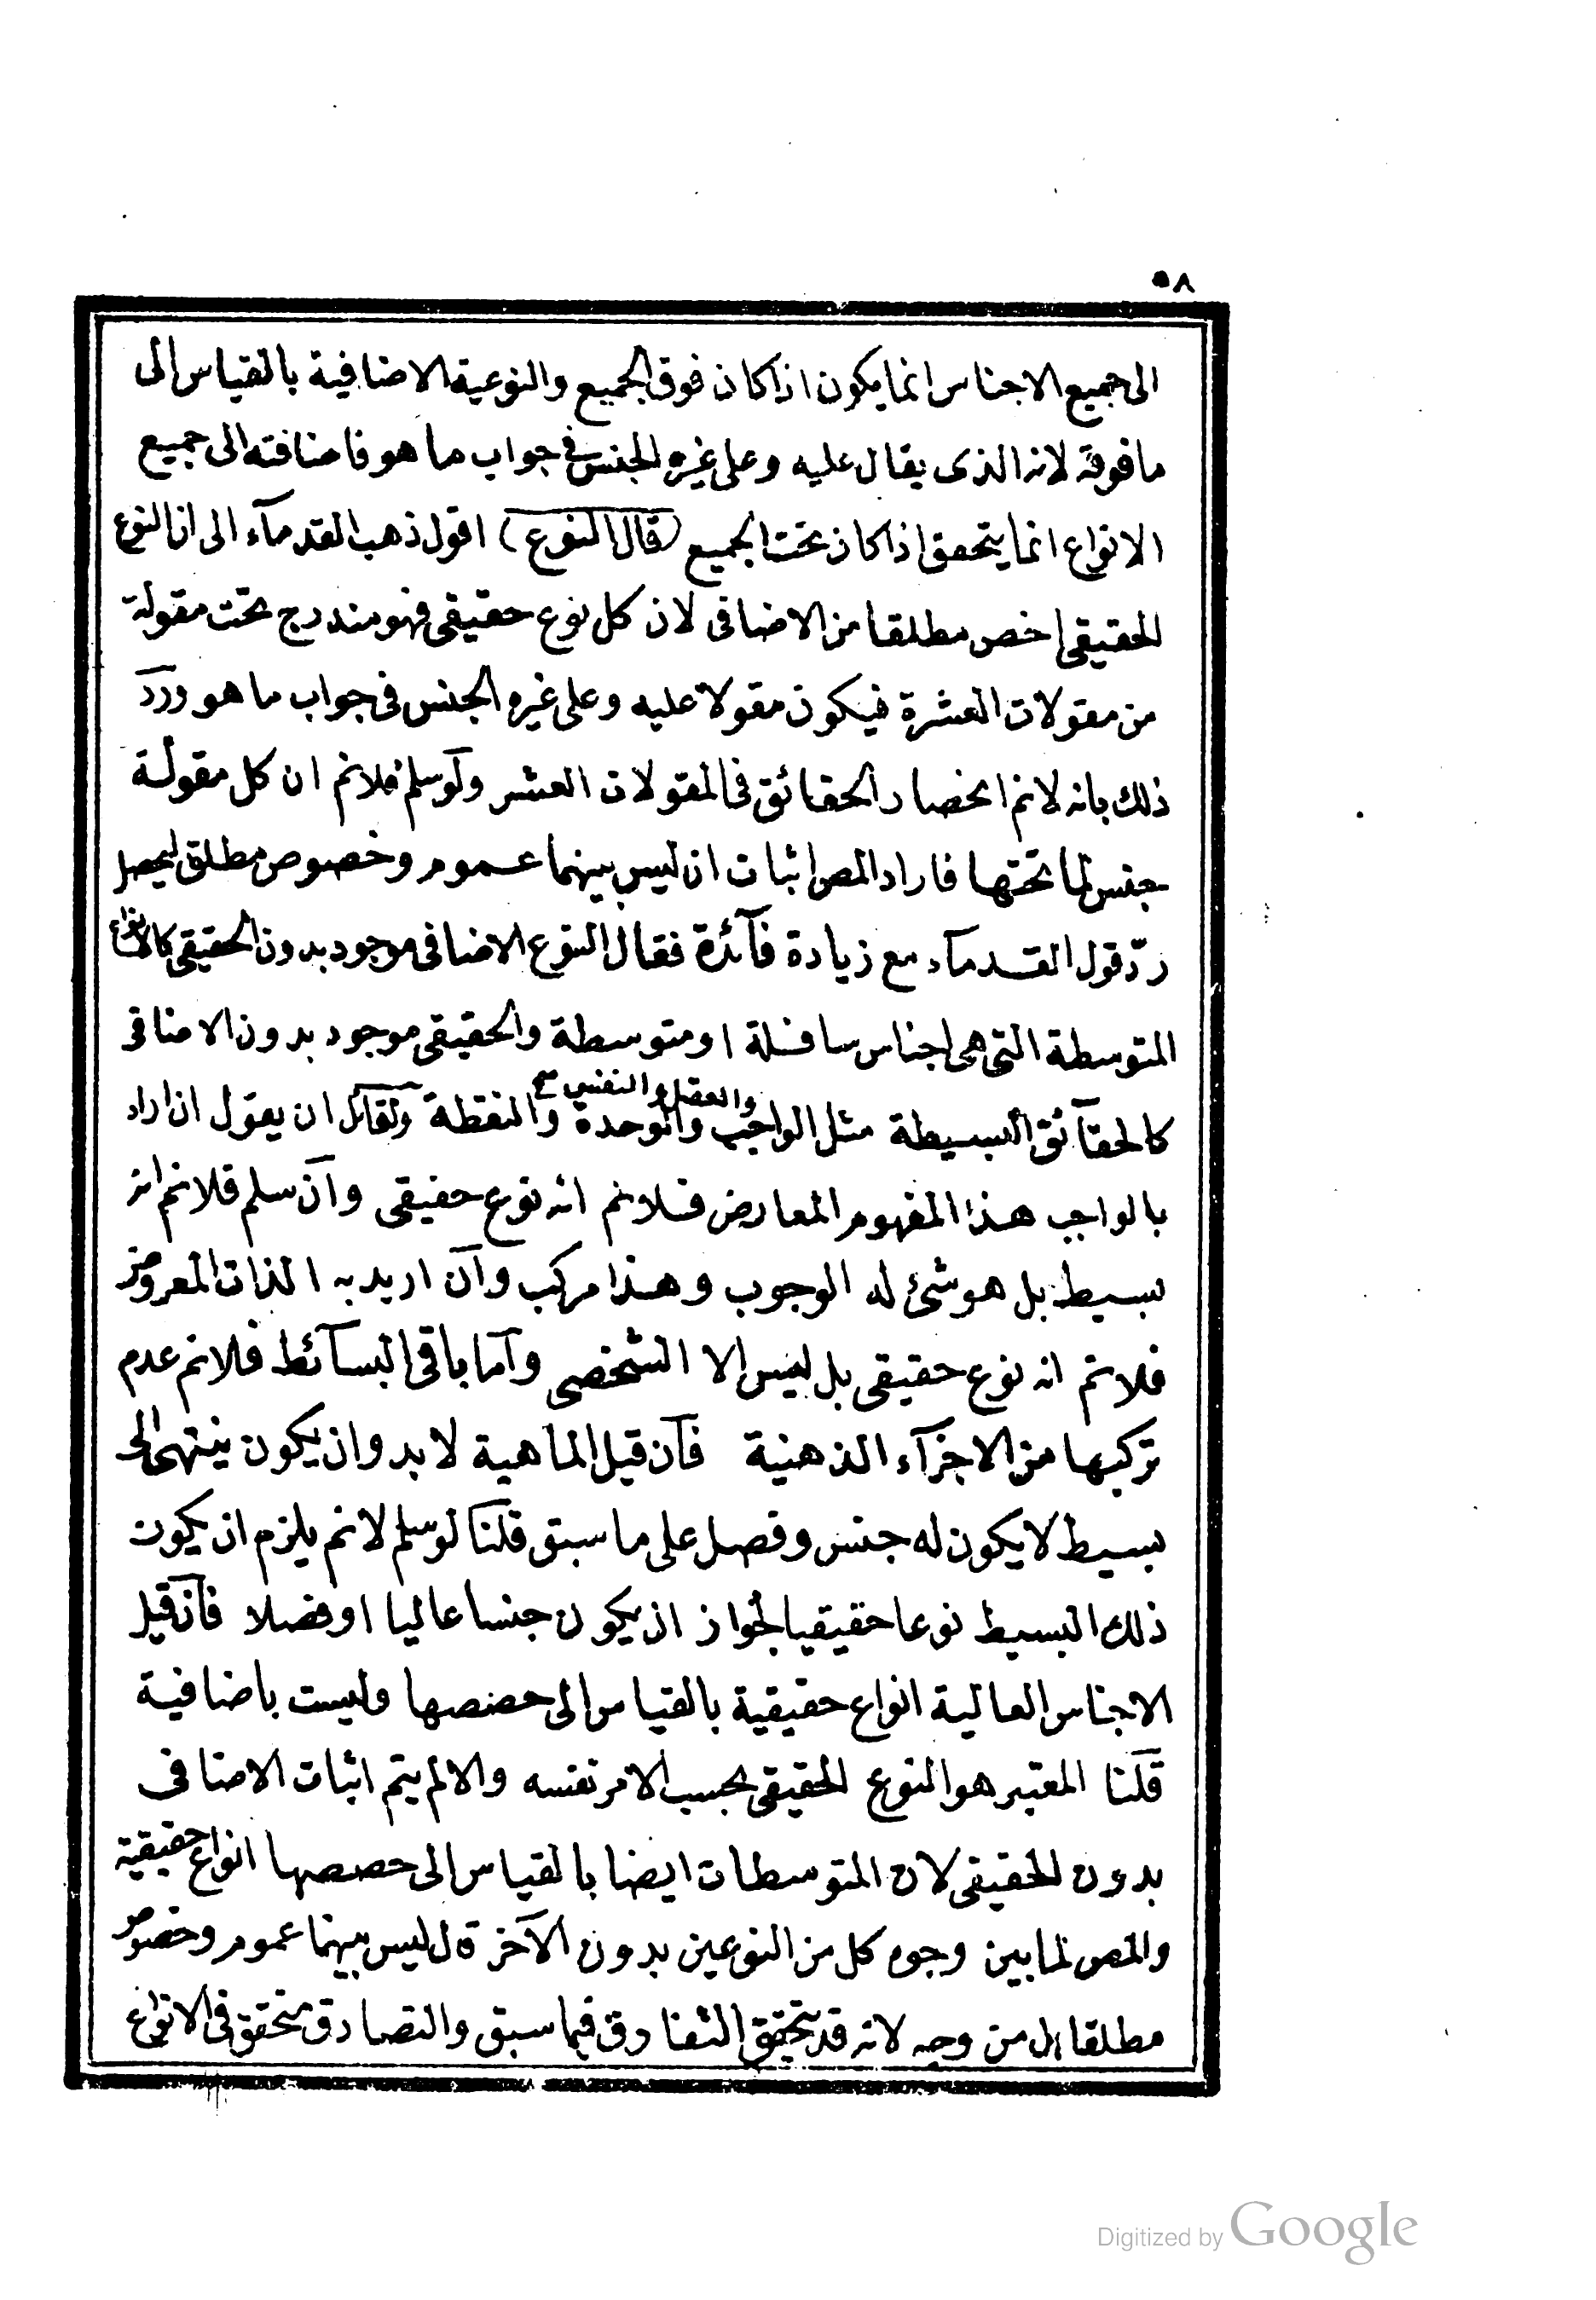 ٥٨
الى جميع الاجناس انما يكون اذا كان فوق الجميع والنوعية الاضافية بالقياس الى
ما فوقه لانه الذى يقال عليه وعلى غيره الجنس فى جواب ما هو فاضافته الى جميع
الانواع انما يتحقق اذا كان تحت الجميع (قال النوع) اقول ذهب القدمآء الى ان النوع
الحقيقى اخص مطلقا من الاضافى لان كل نوع حقيقى فهو مندرج تحت مقولة
من مقولات العشرة فيكون مقولا عليه وعلى غيره الجنس فى جواب ما هو وردّ
ذلك بانه لانم انحصار الحقائق فى المقولات العشر ولو سلم فلانم ان كل مقولة
جنس لما تحتها فاراد المص اثبات ان ليس بينهما عموم وخصوص مطلق ليحصل
ردّ قول القدمآء مع زيادة فآئدة فقال النوع الاضافى موجود بدون الحقيقى كالانواع
المتوسطة التى هى اجناس سافلة او متوسطة والحقيقى موجود بدون الاضافى
والعقل والنفس صح
كالحقآئق البسيطة مثل الواجب والوحدة والنقطة ولقائل ان يقول ان اراد
بالواجب هذا المفهوم العارض فلانم انه نوع حقيقى وان سلم فلانم انه
بسيط بل هو شئ له الوجوب وهذا مركب وان اريد به الذات المعروض
فلانم انه نوع حقيقى بل ليس الا الشخصى واما باقى البسآئط فلانم عدم
تركبها من الاجزآء الذهنية فان قيل الماهية لا بد وان يكون ينتهى الى
بسيط لا يكون له جنس وفصل على ما سبق قلنا لو سلم لانم يلزم ان يكون
ذلك البسيط نوعا حقيقيا لجواز ان يكون جنسا عاليا او فصلا فان قيل
الاجناس العالية انواع حقيقية بالقياس الى حصصها وليست باضافية
قلنا المعتبر هو النوع الحقيقى بحسب الامر نفسه والا لم يتم اثبات الاضافى
بدون الحقيقى لان المتوسطات ايضا بالقياس الى حصصها انواع حقيقية
والمص لما بين وجود كل من النوعين بدون الآخر قال ليس بينهما عموم وخصوص
مطلقا بل من وجه لانه قد يتحقق التفارق فيما سبق والتصادق متحقق فى الانواع
Digitized by Google